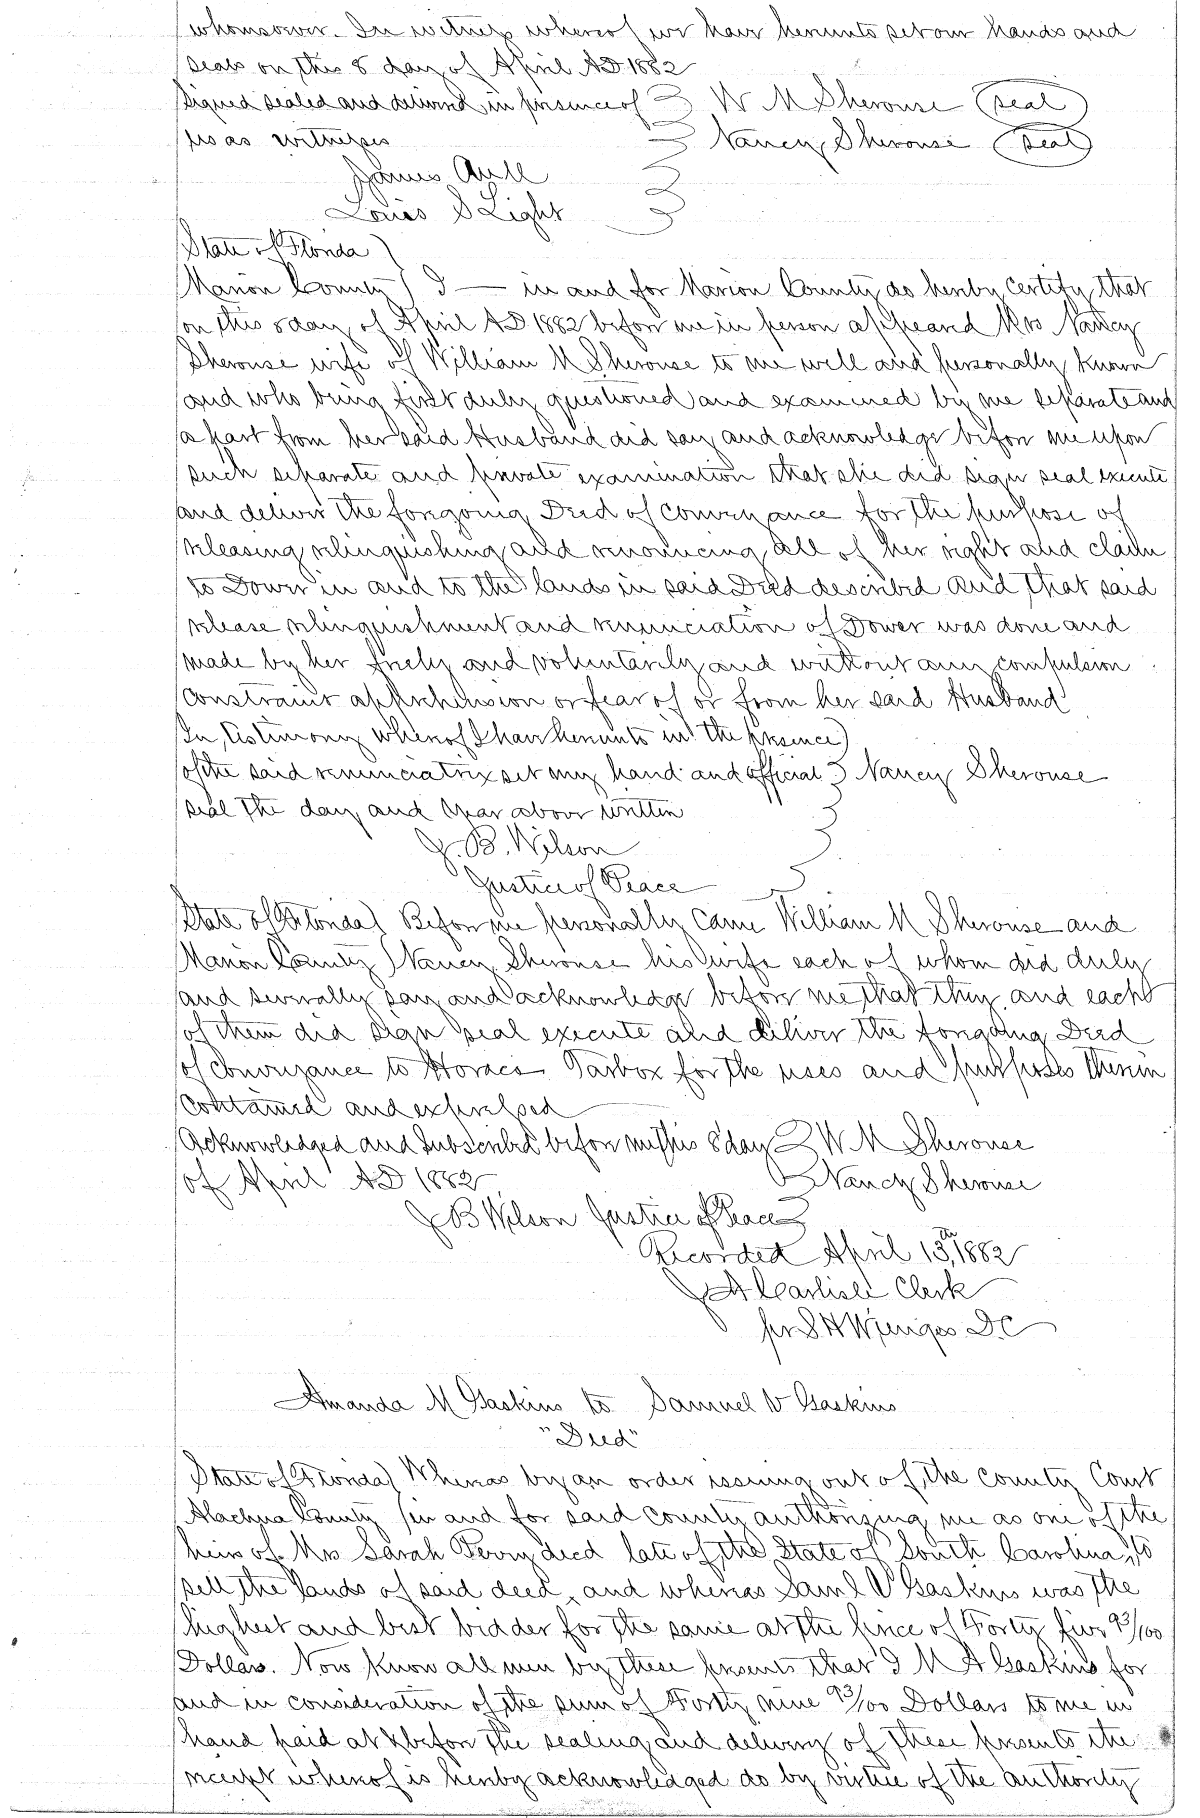 whomsoever. In witness whereof we have hereunto set our hands and
seals on this 8 day of April AD 1882
Signed sealed and delivered in presence of W M Sherouse (seal)
us as witnesses Nancy Sherouse (seal)
James Aull
Louis S Light
State of Florida
Marion County I — in and for Marion County do hereby certify that
on this 8 day of April AD 1882 before me in person appeared Mrs Nancy
Sherouse wife of William M Sherouse to me well and personally known
and who being first duly questioned and examined by me separate and
apart from her said Husband did say and acknowledge before me upon
such separate and private examination that she did sign seal execute
and deliver the foregoing Deed of Conveyance for the purpose of
releasing relinquishing and renouncing all of her right and claim
to Dower in and to the lands in said Deed described and that said
release relinquishment and renunciation of Dower was done and
made by her freely and voluntarily and without any compulsion
constraint apprehension or fear of or from her said Husband
In testimony whereof I have hereunto in the presence
of the said renunciatrix set my hand and official Nancy Sherouse
seal the day and year above written
J. B. Wilson
Justice of Peace
State of Florida Before me personally came William M Sherouse and
Marion County Nancy Sherouse his wife each of whom did duly
and severally say and acknowledge before me that they and each
of them did sign seal execute and deliver the foregoing Deed
of Conveyance to Horace Tarbox for the uses and purposes therein
contained and expressed
Acknowledged and Subscribed before me this 8 day W M Sherouse
of April AD 1882 Nancy Sherouse
J B Wilson Justice of Peace
Recorded April 13th, 1882
J A Carlisle Clerk
per S H Wienges D.C
Amanda M Gaskins to Samuel V Gaskins
"Deed"
State of Florida Whereas by an order issuing out of the county Court
Alachua County in and for said county authorizing me as one of the
heirs of Mrs Sarah Perry decd late of the State of South Carolina, to
sell the lands of said decd, and whereas Saml V Gaskins was the
highest and best bidder for the same at the price of Forty five 93/100
Dollars. Now know all men by these presents that I M A Gaskins for
and in consideration of the sum of Forty nine 93/100 Dollars to me in
hand paid at & before the sealing and delivery of these presents the
receipt whereof is hereby acknowledged do by virtue of the authority